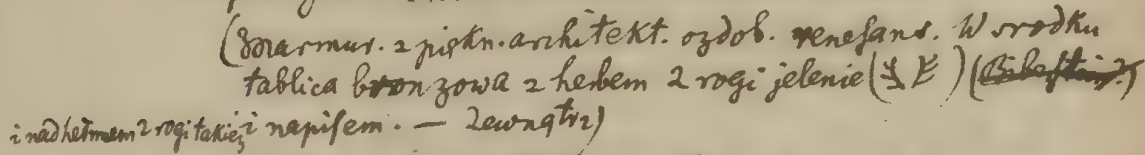 (Marmur. z piękn. architekt. ozdob. renesans. W srodku
tablica bronzowa z herbem 2 rogi jelenie ( ) (Biberstein?)
i nad hełmem 2 rogi takież i napisem. — Zewnątrz)